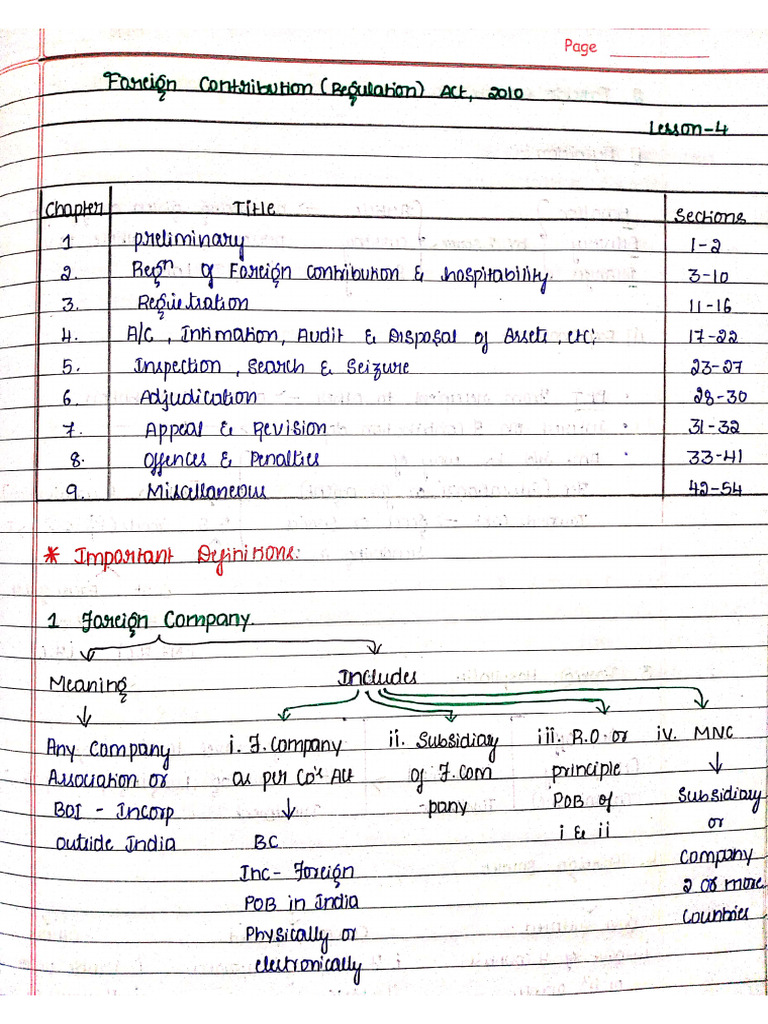 Page
Foreign Contribution (Regulation) Act, 2010
Lesson-4
Chapter Title Sections
1 preliminary 1-2
2. Regn of Foreign contribution & hospitability. 3-10
3. Registration 11-16
4. A/C, Intimation, Audit & Disposal of Assets, etc; 17-22
5. Inspection, Search & Seizure 23-27
6. Adjudication 28-30
7. Appeal & Revision 31-32
8. Offences & Penalties 33-41
9. Miscellaneous 42-54
* Important Definitions:
1 Foreign Company.
Meaning Includes
Any Company i. F. Company ii. Subsidiary iii. R.O. or iv. MNC
Association or as per Co's Act of F. Com principle
BOI - Incorp pany POB of Subsidiary
outside India BC i & ii or
Inc- Foreign Company
POB in India 2 or more
Physically or Countries
electronically